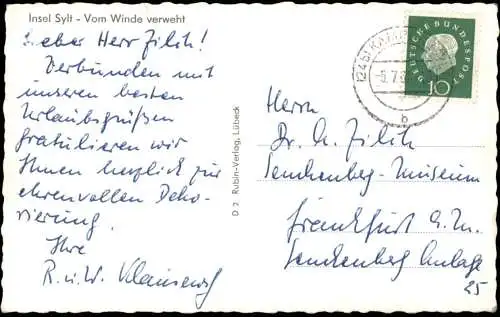 Insel Sylt - Vom Winde verweht
Lieber Herr Zilch!
Verbunden mit
unseren besten
Urlaubsgrüßen
gratulieren wir
Ihnen herzlich zur
ehrenvollen Deko-
rierung.
Ihre
R. u. W.
D 2 Rubin-Verlag, Lübeck
DEUTSCHE BUNDESPOST
10
b
Herrn
Dr. A. Zilch
Senckenberg-Museum
Frankfurt a. M.
Senckenberg Anlage
25